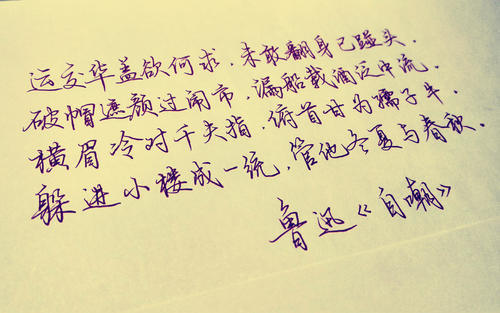 运交华盖欲何求，未敢翻身已碰头．
破帽遮颜过闹市，漏船载酒泛中流．
横眉冷对千夫指，俯首甘为孺子牛．
躲进小楼成一统，管他冬夏与春秋．
鲁迅《自嘲》